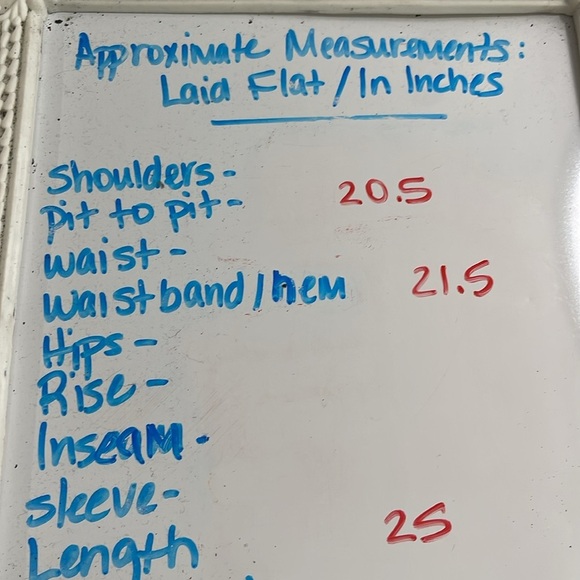 Approximate Measurements:
Laid Flat / In Inches
shoulders-
pit to pit- 20.5
waist-
Waistband/hem 21.5
Hips-
Rise-
Inseam-
sleeve-
Length 25